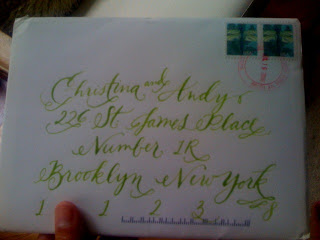 Christina and Andy
226 St James Place
Number 1R
Brooklyn New York
1 1 2 3 8